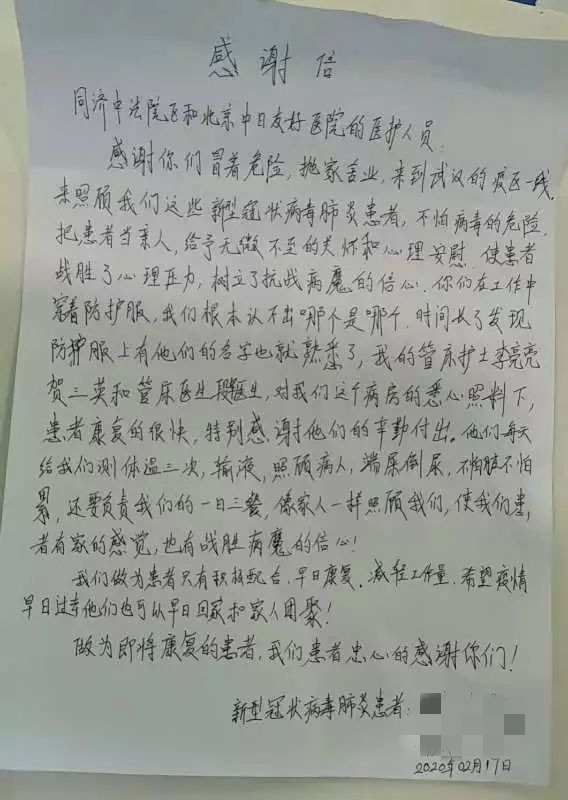 感谢信
同济中法院区和北京中日友好医院的医护人员
感谢你们冒着危险，抛家舍业，来到武汉的疫区一线，
来照顾我们这些新型冠状病毒肺炎患者，不怕病毒的危险，
把患者当亲人，给予无微不至的关怀和心理安慰，使患者
战胜了心理压力，树立了抗战病魔的信心。你们在工作中
穿着防护服，我们根本认不出哪个是哪个，时间长了发现
防护服上有他们的名字也就熟悉了，我的管床护士李亮亮
贺三英和管床医生段医生，对我们这个病房的悉心照料下，
患者康复的很快，特别感谢他们的辛勤付出。他们每天
给我们测体温三次，输液，照顾病人，端屎倒尿，不怕脏不怕
累，还要负责我们的一日三餐，像家人一样照顾我们，使我们患
者有家的感觉，也有战胜病魔的信心！
我们做为患者只有积极配合，早日康复，减轻工作量，希望疫情
早日过去他们也可以早日回家和家人团聚！
做为即将康复的患者，我们患者忠心的感谢你们！
新型冠状病毒肺炎患者：
2020年02月17日